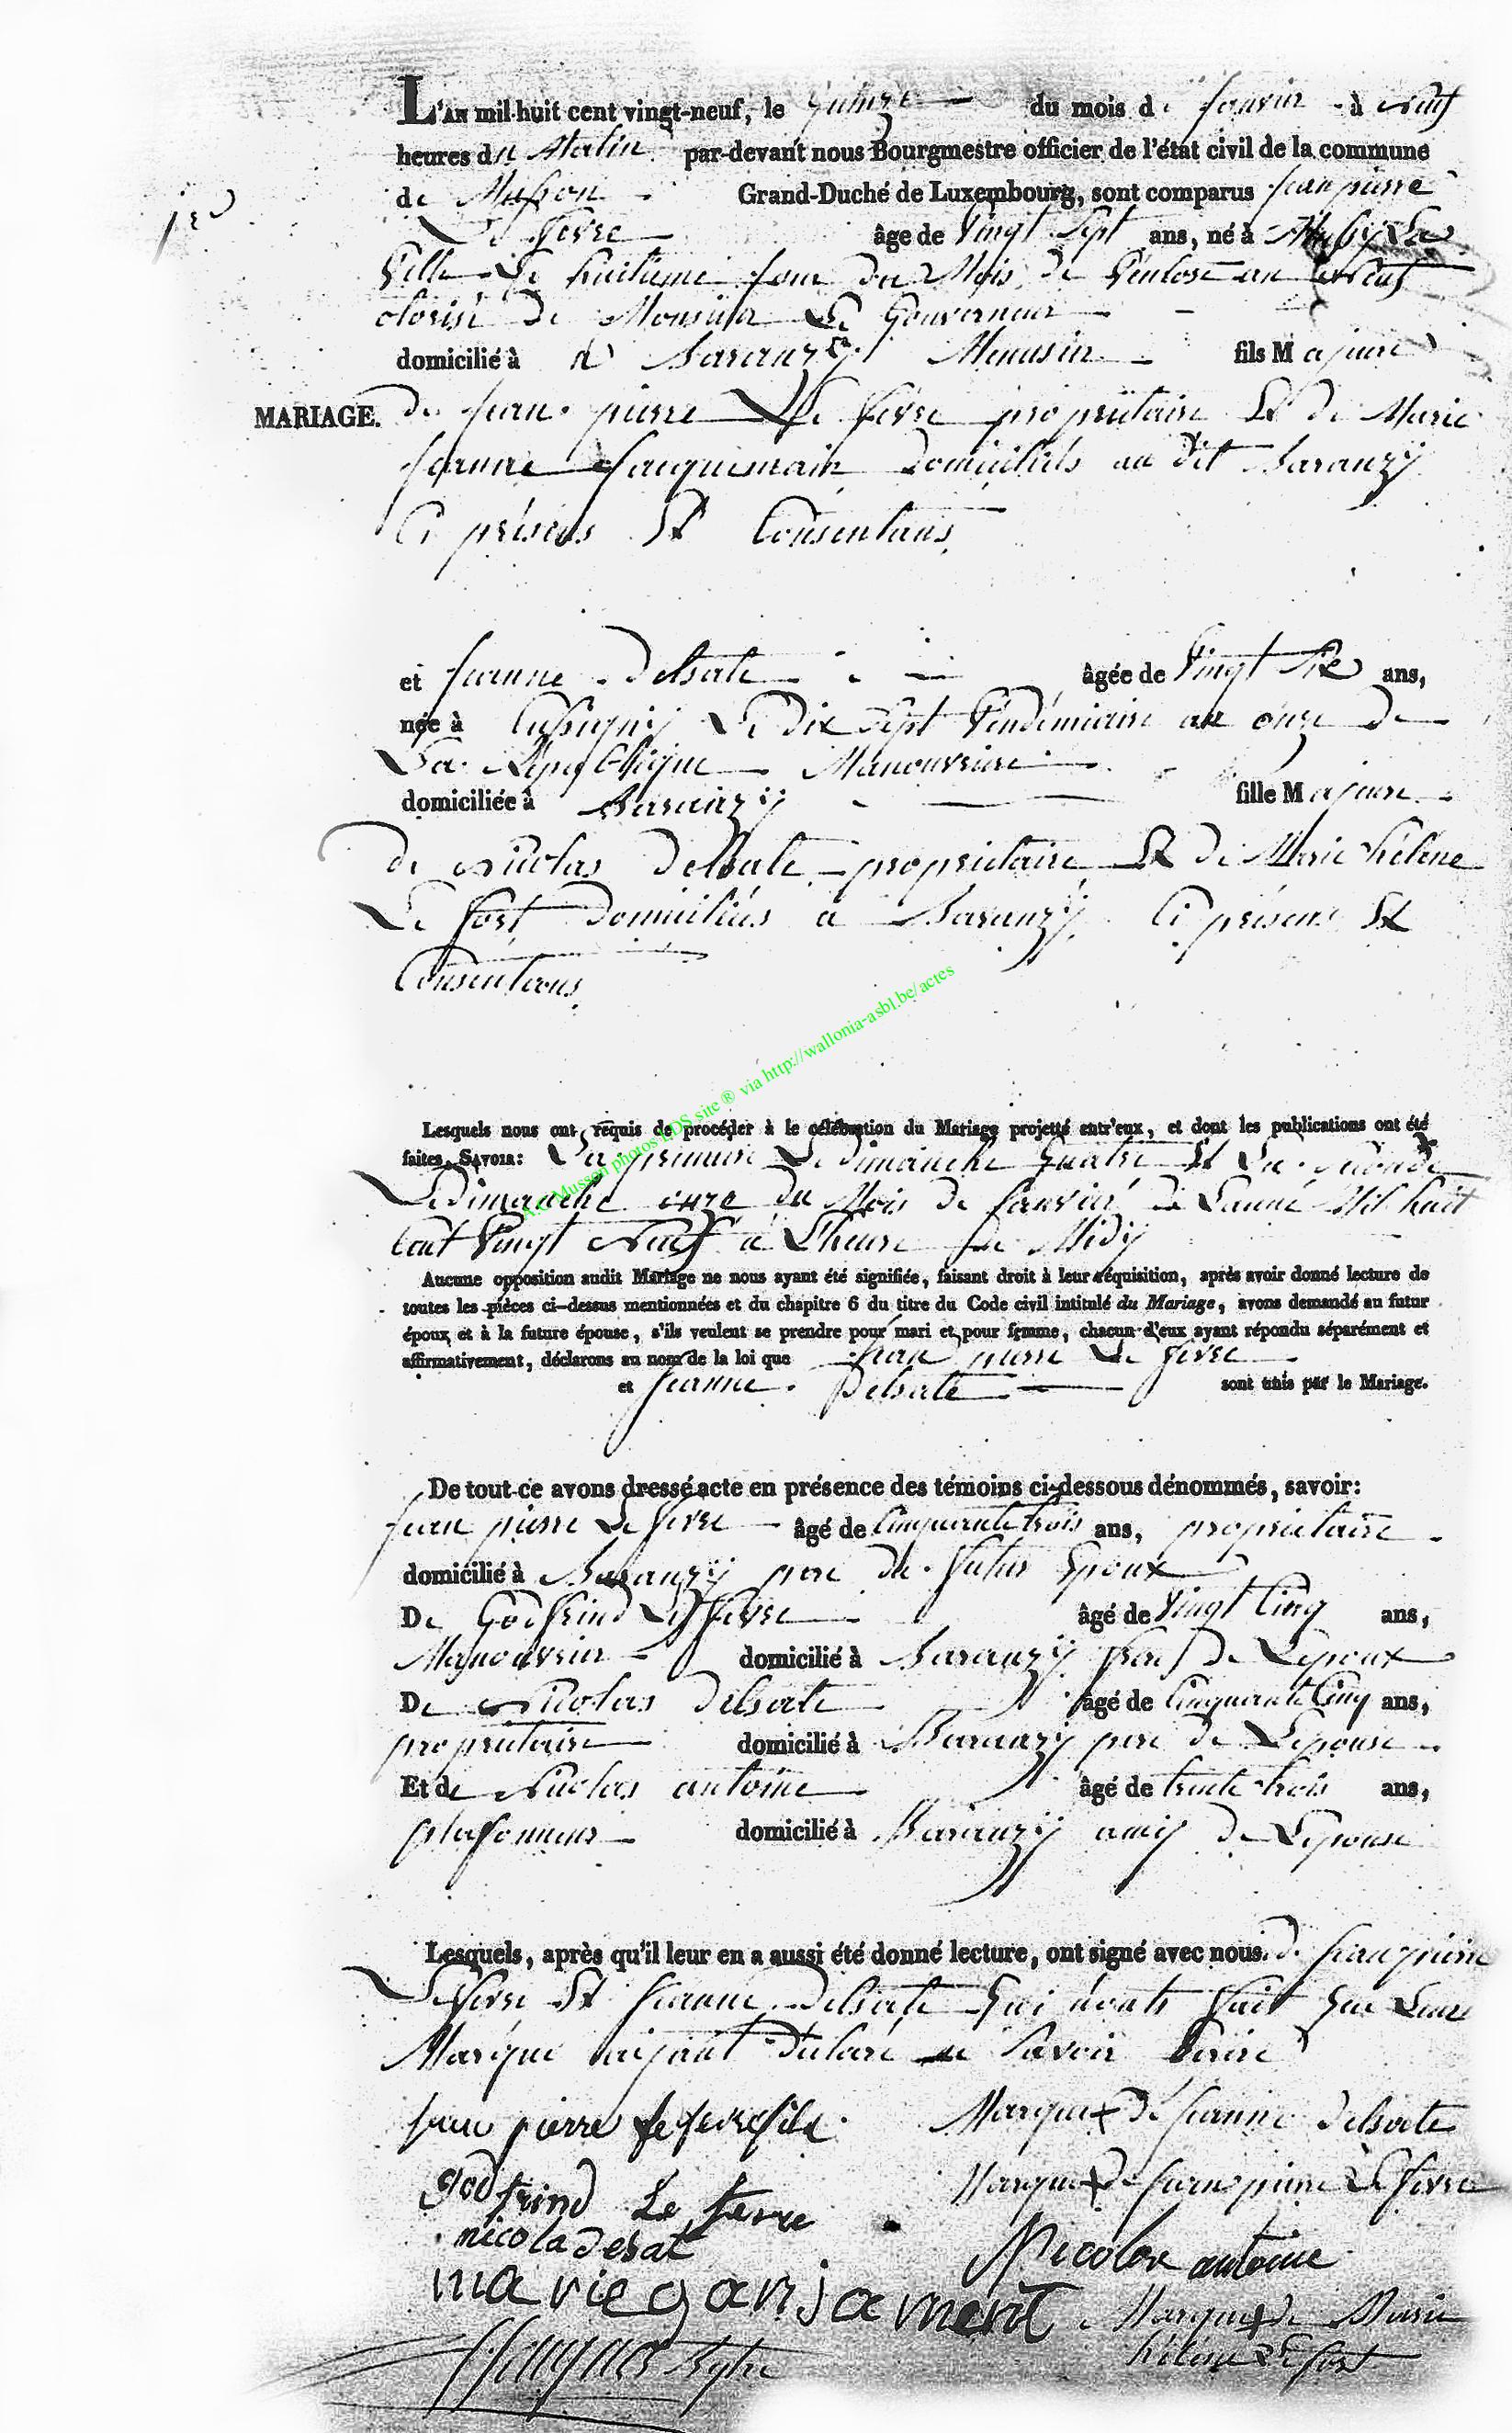 L'AN mil huit cent vingt-neuf, le quinze du mois de janvier à neuf
heures du Matin par-devant nous Bourgmestre officier de l'état civil de la commune
de Musson Grand-Duché de Luxembourg, sont comparus jean pierre
Le fevre âge de Vingt Sept ans, né à Mussy La
Ville Le huitieme jour du Mois de Ventose an neuf
de Monsieur Le Gouverneur
domicilié à à Baranzÿ Menusier fils Majeure
MARIAGE. de jean pierre Le fevre propriétaire Et de Marie
jeanne jacquemain domiciliés au dit Baranzÿ
Ci présens Et Consentans
et jeanne delsate âgée de Vingt Six ans,
née à Cussignÿ Le dix Sept Vendémiaire an onze de
La République Manouvriere
domiciliée à Baranzÿ fille Majeure
de Nicolas delsate propriétaire Et de Marie hélène
Le fort domiciliés à Baranzÿ Ci présens Et
Consentans
A.C. Musson photos LDS site ® via http://wallonia-asbl.be/actes
Lesquels nous ont requis de procéder à le célébration du Mariage projetté entr'eux, et dont les publications ont été
faites, SAVOIR: La premiere Le dimanche quatre Et La seconde
Le dimanche onze du Mois de janvier de Lanné Mil huit
Cent Vingt Neuf à L'heure de Midÿ
Aucune opposition audit Mariage ne nous ayant été signifiée, faisant droit à leur réquisition, après avoir donné lecture de
toutes les pièces ci-dessus mentionnées et du chapitre 6 du titre du Code civil intitulé du Mariage, avons demandé au futur
époux et à la future épouse, s'ils veulent se prendre pour mari et pour femme, chacun d'eux ayant répondu séparément et
affirmativement, déclarons au nom de la loi que jean pierre Le fevre
et jeanne Delsate sont unis par le Mariage.
De tout ce avons dressé acte en présence des témoins ci-dessous dénommés, savoir:
jean pierre Le fevre âgé de Cinquante trois ans, propriétaire
domicilié à Baranzÿ pere du futur Epoux
De Godfrind Le fevre âgé de Vingt Cinq ans,
Manouvrier domicilié à Baranzÿ frere de Lepoux
De Nicolas delsate âgé de Cinquante Cinq ans,
propriétaire domicilié à Baranzÿ pere de Lepouse
Et de Nicolas antoine âgé de trente trois ans,
plafonneur domicilié à Baranzÿ amÿ de Lepouse
Lesquels, après qu'il leur en a aussi été donné lecture, ont signé avec nous. jean pierre
Lefevre Et jeanne delsate qui nonts fait que Leurs
Marque aijant déclaré ne Savoir
jean pierre le fevre fils Marque + de jeanne delsate
godfrind Le fevre Marque + de jean pierre Le fevre
nicola delsat Nicolas antoine
marie ganjament Marque + de Marie
hélène Le fort